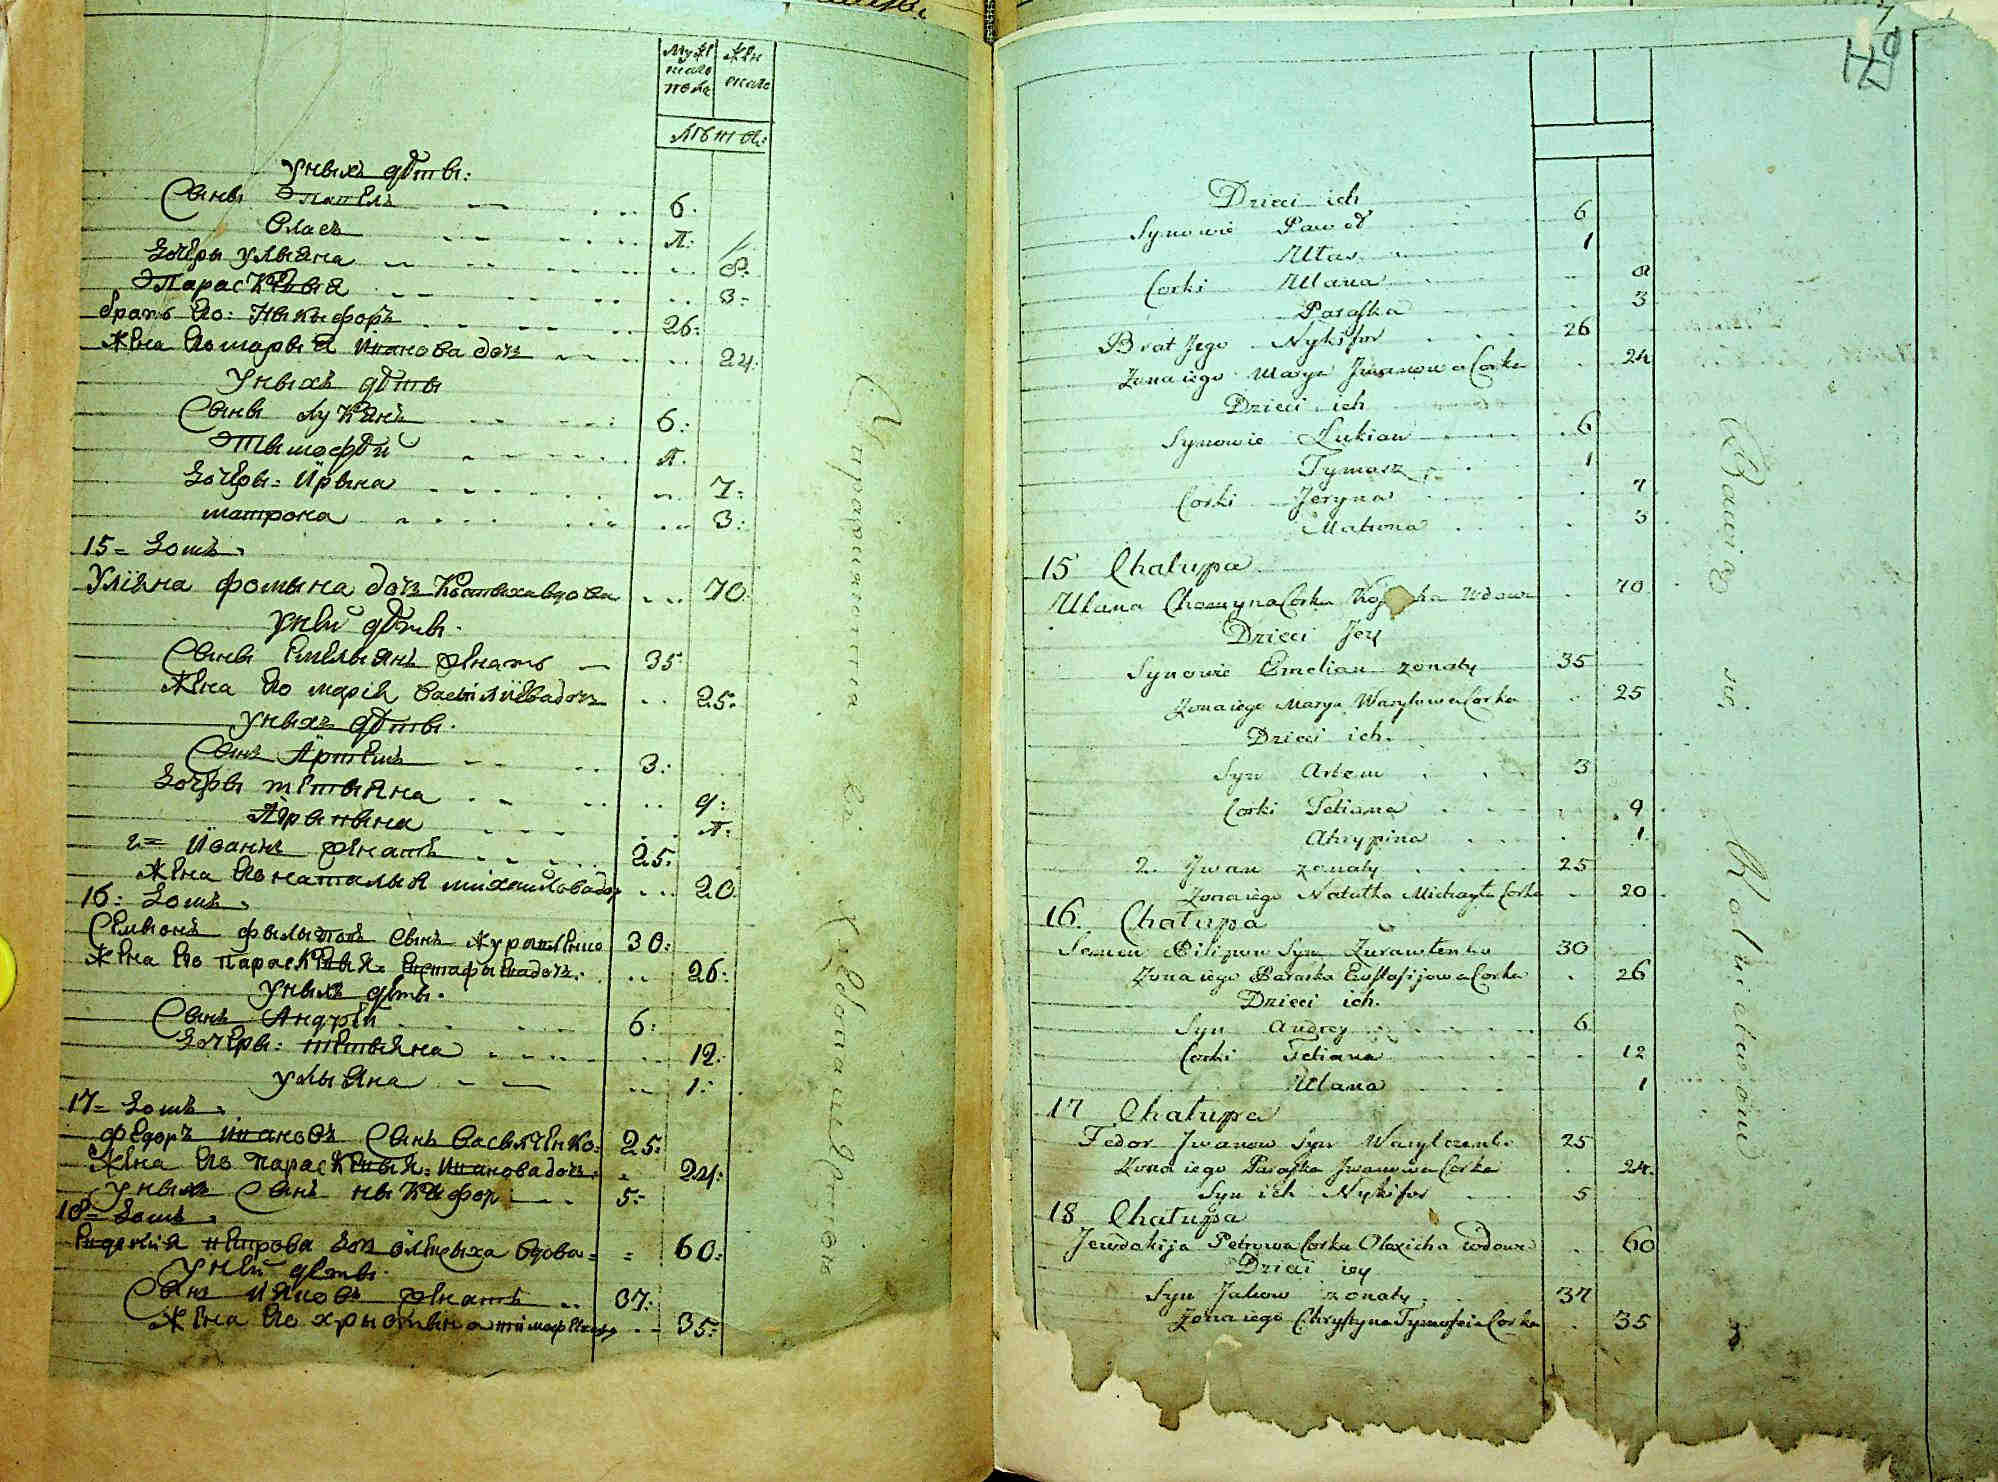 Мужескаго пола
Женскаго
Лѣта:
У ныхъ дѣты:
Сыны Павелъ 6.
Власъ 1:
Дочеры Улыяна 8:
Параскевия 3:
братъ Его: Никыфоръ 26:
Жена Его марыя Иванова дочь 24:
У ныхъ дѣты
Сыны Лукянъ 6:
Тымофѣй 1.
Дочеры: Ирына 7:
матрона 3:
15= Домъ.
Улияна фомына дочь вдова 70
У ней дѣты.
Сыны Емелыянъ женатъ 35:
Жена Его марія Василиева дочь 25:
У ныхъ дѣты.
Сынъ Артемъ 3:
Дочеры тетыяна 9:
Агрыпына 1:
2= Иванъ женатъ 25:
Жена Его наталыя михайлова дочь 20
16: Домъ.
Семионъ фылыповъ Сынъ 30:
Жена Его параскевыя: Евстафыева дочь: 26:
У ныхъ дѣты.
Сынъ Андрей 6:
Дочеры: тетыяна 12:
улыяна 1:
17= Домъ.
Федоръ Ивановъ Сынъ Василченко: 25:
Жена Его параскевыя: Иванова дочь: 24:
У ныхъ Сынъ ныкыфор 5:
18= Домъ.
Евдокия петрова дочь вдова= 60:
У ней дѣты.
Сынъ Яковъ женатъ 37:
Жена Его хрыстына 35:
Dzieci ich
Synowie Paweł 6
Ułas 1
Corki Ulana 8
Paraska 3
Brat Jego Nykifor 26
Zona iego Marya Jwanowa Corka 24
Dzieci ich
Synowie Łukian 6
Tymosz 1
Corki Jeryna 7
Matrona 3
15 Chałupa
Ulana Chomyna Corka Wdowa 70
Dzieci Jey
Synowie Emelian zonaty 35
Zona iego Marya Wasylowa Corka 25
Dzieci ich.
Syn Artem 3
Corki Tetiana 9
Ahrypina 1
2. Jwan zonaty 25
Zona iego Natalka Michayła Corka 20
16. Chałupa
Semen Pilipow Syn Zurawlenko 30
Zona iego Paraska Eustafijowa Corka 26
Dzieci ich.
Syn Andrey 6
Corki Tetiana 12
Ulana 1
17 Chałupa
Fedor Jwanow Syn Wasylczenko 25
Zona iego Paraska Jwanowa Corka 24
Syn ich Nykifor 5
18 Chałupa
Jewdokija Petrowa Corka Olexicha wdowa 60
Dzieci iey
Syn Jakow zonaty 37
Zona iego Chrystyna Tymofeia Corka 35